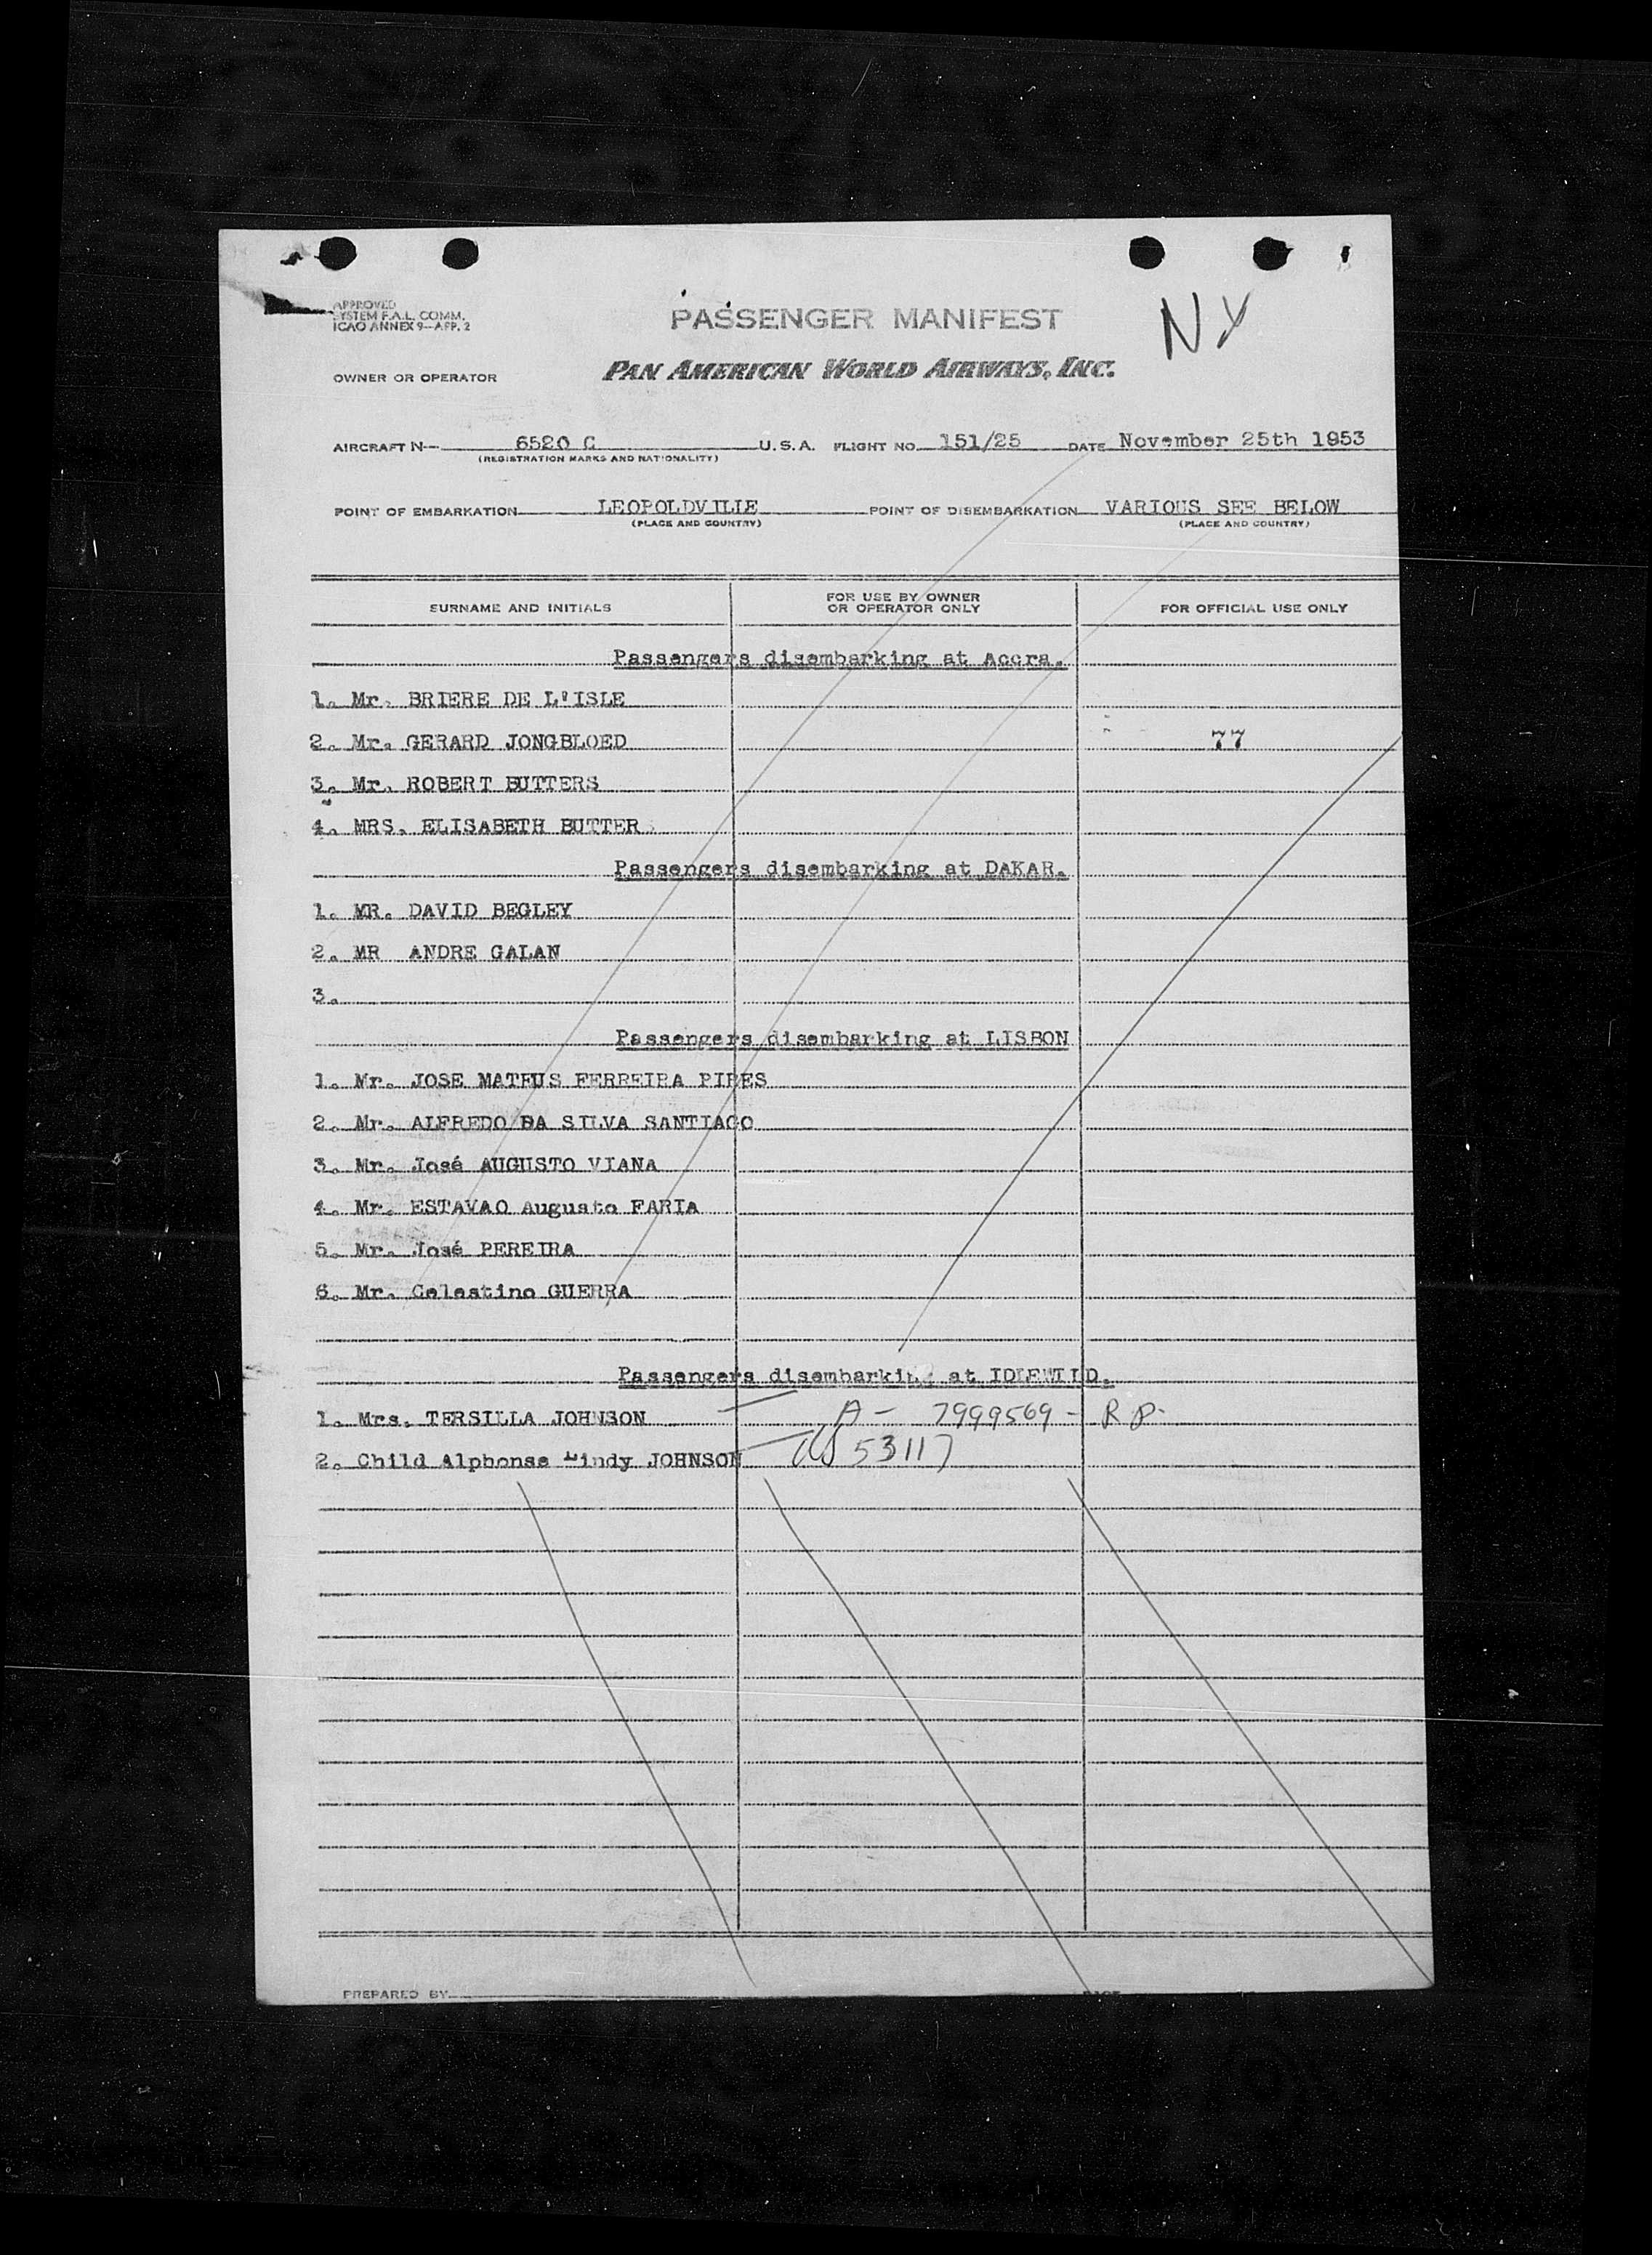 APPROVED
SYSTEM F.A.L. COMM.
ICAO ANNEX 9—APP. 2
PASSENGER MANIFEST
NY
OWNER OR OPERATOR PAN AMERICAN WORLD AIRWAYS, INC.
AIRCRAFT N— 6520 C U.S.A. FLIGHT NO. 151/25 DATE November 25th 1953
(REGISTRATION MARKS AND NATIONALITY)
POINT OF EMBARKATION LEOPOLDVILLE POINT OF DISEMBARKATION VARIOUS SEE BELOW
(PLACE AND COUNTRY) (PLACE AND COUNTRY)
SURNAME AND INITIALS FOR USE BY OWNER OR OPERATOR ONLY FOR OFFICIAL USE ONLY
Passengers disembarking at Accra.
1. Mr. BRIERE DE L'ISLE
2. Mr. GERARD JONGBLOED 77
3. Mr. ROBERT BUTTERS
4. MRS. ELISABETH BUTTER
Passengers disembarking at DAKAR.
1. MR. DAVID BEGLEY
2. MR ANDRE GALAN
3.
Passengers disembarking at LISBON
1. Mr. JOSE MATEUS FERREIRA PIRES
2. Mr. ALFREDO DA SILVA SANTIAGO
3. Mr. José AUGUSTO VIANA
4. Mr. ESTAVAO Augusto FARIA
5. Mr. José PEREIRA
6. Mr. Celestino GUERRA
Passengers disembarking at IDLEWILD.
1. Mrs. TERSILLA JOHNSON A- 7999569 - RP.
2. Child Alphonse Lindy JOHNSON US 53117
PREPARED BY